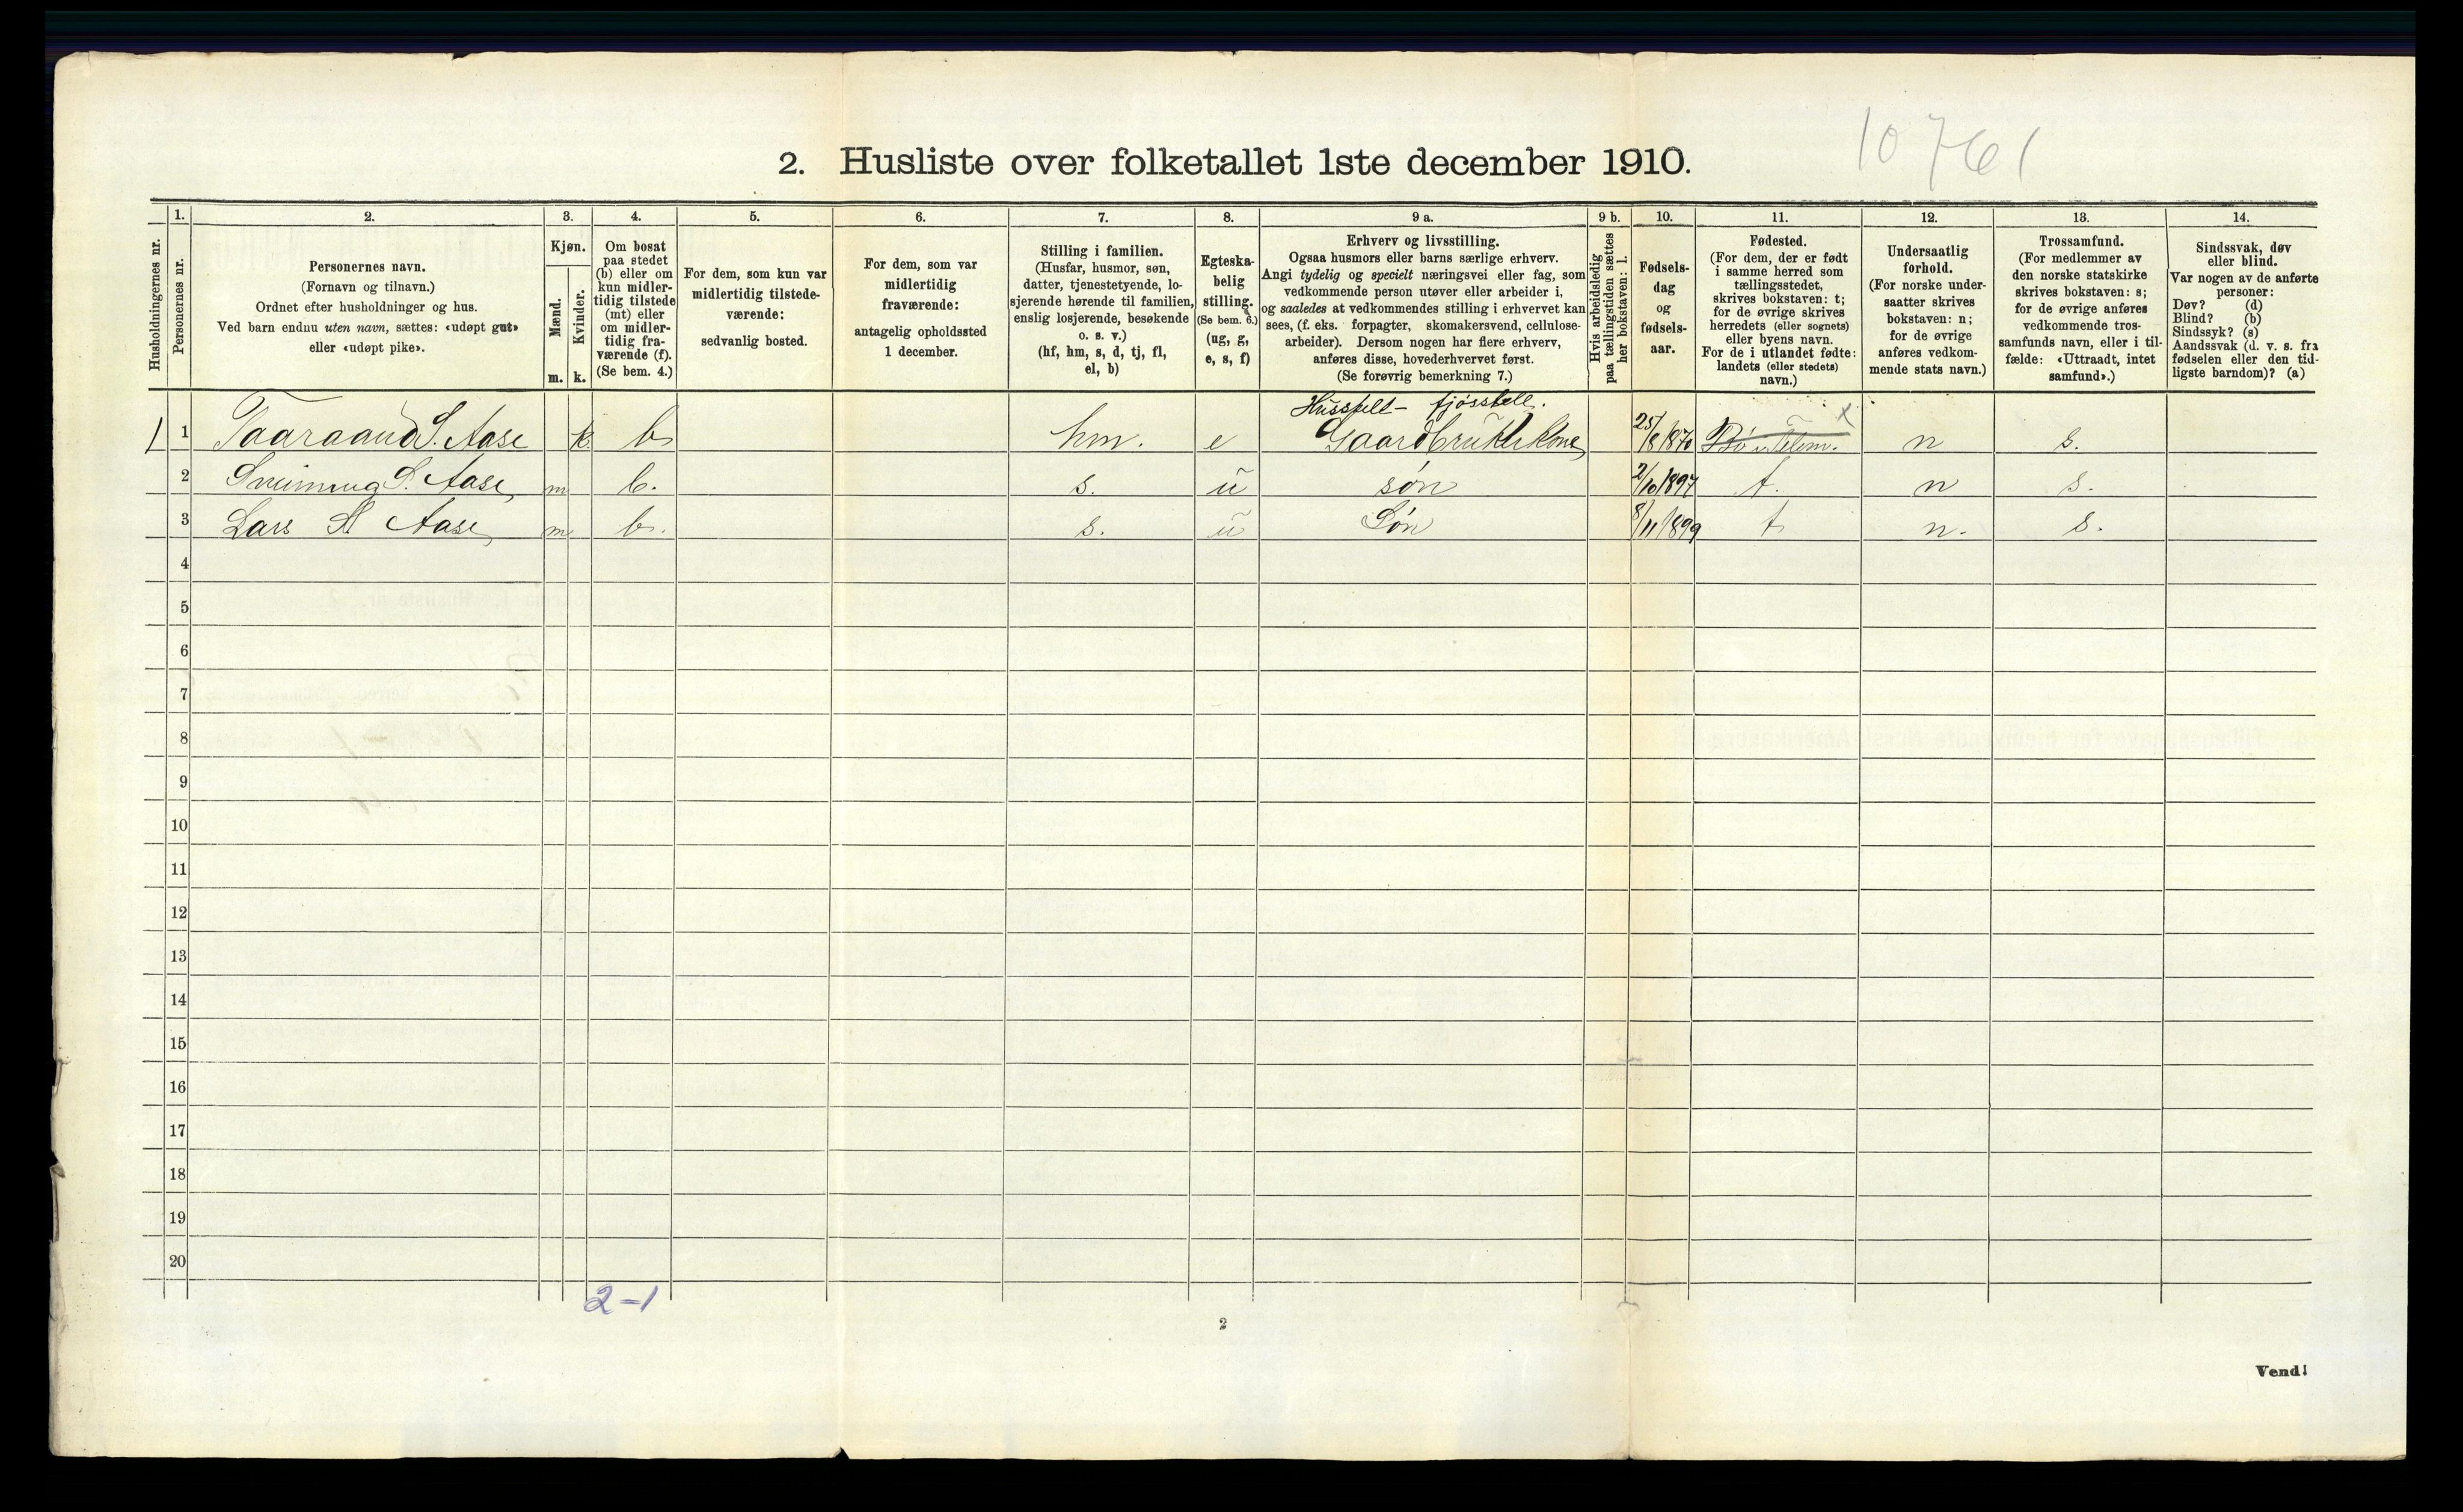 10 761
2. Husliste over folketallet 1ste december 1910.
Husholdningernes nr.
1.
Personernes nr.
2.
Personernes navn.
(Fornavn og tilnavn.)
Ordnet efter husholdninger og hus.
Ved barn endnu uten navn, sættes: «udøpt gut»
eller «udøpt pike».
3.
Kjøn.
Mænd.
m.
Kvinder.
k.
4.
Om bosat
paa stedet
(b) eller om
kun midler-
tidig tilstede
(mt) eller
om midler-
tidig fra-
værende (f).
(Se bem. 4.)
5.
For dem, som kun var
midlertidig tilstede-
værende:
sedvanlig bosted.
6.
For dem, som var
midlertidig
fraværende:
antagelig opholdssted
1 december.
7.
Stilling i familien.
(Husfar, husmor, søn,
datter, tjenestetyende, lo-
sjerende hørende til familien,
enslig losjerende, besøkende
o. s. v.)
(hf, hm, s, d, tj, fl,
el, b)
8.
Egteska-
belig
stilling.
(Se bem. 6.)
(ug, g,
e, s, f)
9 a.
Erhverv og livsstilling.
Ogsaa husmors eller barns særlige erhverv.
Angi tydelig og specielt næringsvei eller fag, som
vedkommende person utøver eller arbeider i,
og saaledes at vedkommendes stilling i erhvervet kan
sees, (f. eks. forpagter, skomakersvend, cellulose-
arbeider). Dersom nogen har flere erhverv,
anføres disse, hovederhvervet først.
(Se forøvrig bemerkning 7.)
9 b.
Hvis arbeidsledig
paa tællingstiden sættes
her bokstaven: l.
10.
Fødsels-
dag
og
fødsels-
aar.
11.
Fødested.
(For dem, der er født
i samme herred som
tællingsstedet,
skrives bokstaven: t;
for de øvrige skrives
herredets (eller sognets)
eller byens navn.
For de i utlandet fødte:
landets (eller stedets)
navn.)
12.
Undersaatlig
forhold.
(For norske under-
saatter skrives
bokstaven: n;
for de øvrige
anføres vedkom-
mende stats navn.)
13.
Trossamfund.
(For medlemmer av
den norske statskirke
skrives bokstaven: s;
for de øvrige anføres
vedkommende tros-
samfunds navn, eller i til-
fælde: «Uttraadt, intet
samfund».)
14.
Sindssvak, døv
eller blind.
Var nogen av de anførte
personer:
Døv? (d)
Blind? (b)
Sindssyk? (s)
Aandssvak (d. v. s. fra
fødselen eller den tid-
ligste barndom)? (a)
Husstell- fjøsstell.
1 1 Taaraand S. Aase k b hm. e Gaardbrukerkone 25/8 1870 Bø i Telem. n s.
2 Sveinung S. Aase m b. s. u søn 2/10 1897 t. n s.
3 Lars S Aase m b. s. u Søn 8/11 1899 t n. s.
4
5
6
7
8
9
10
11
12
13
14
15
16
17
18
19
20
2-1
2
Vend!